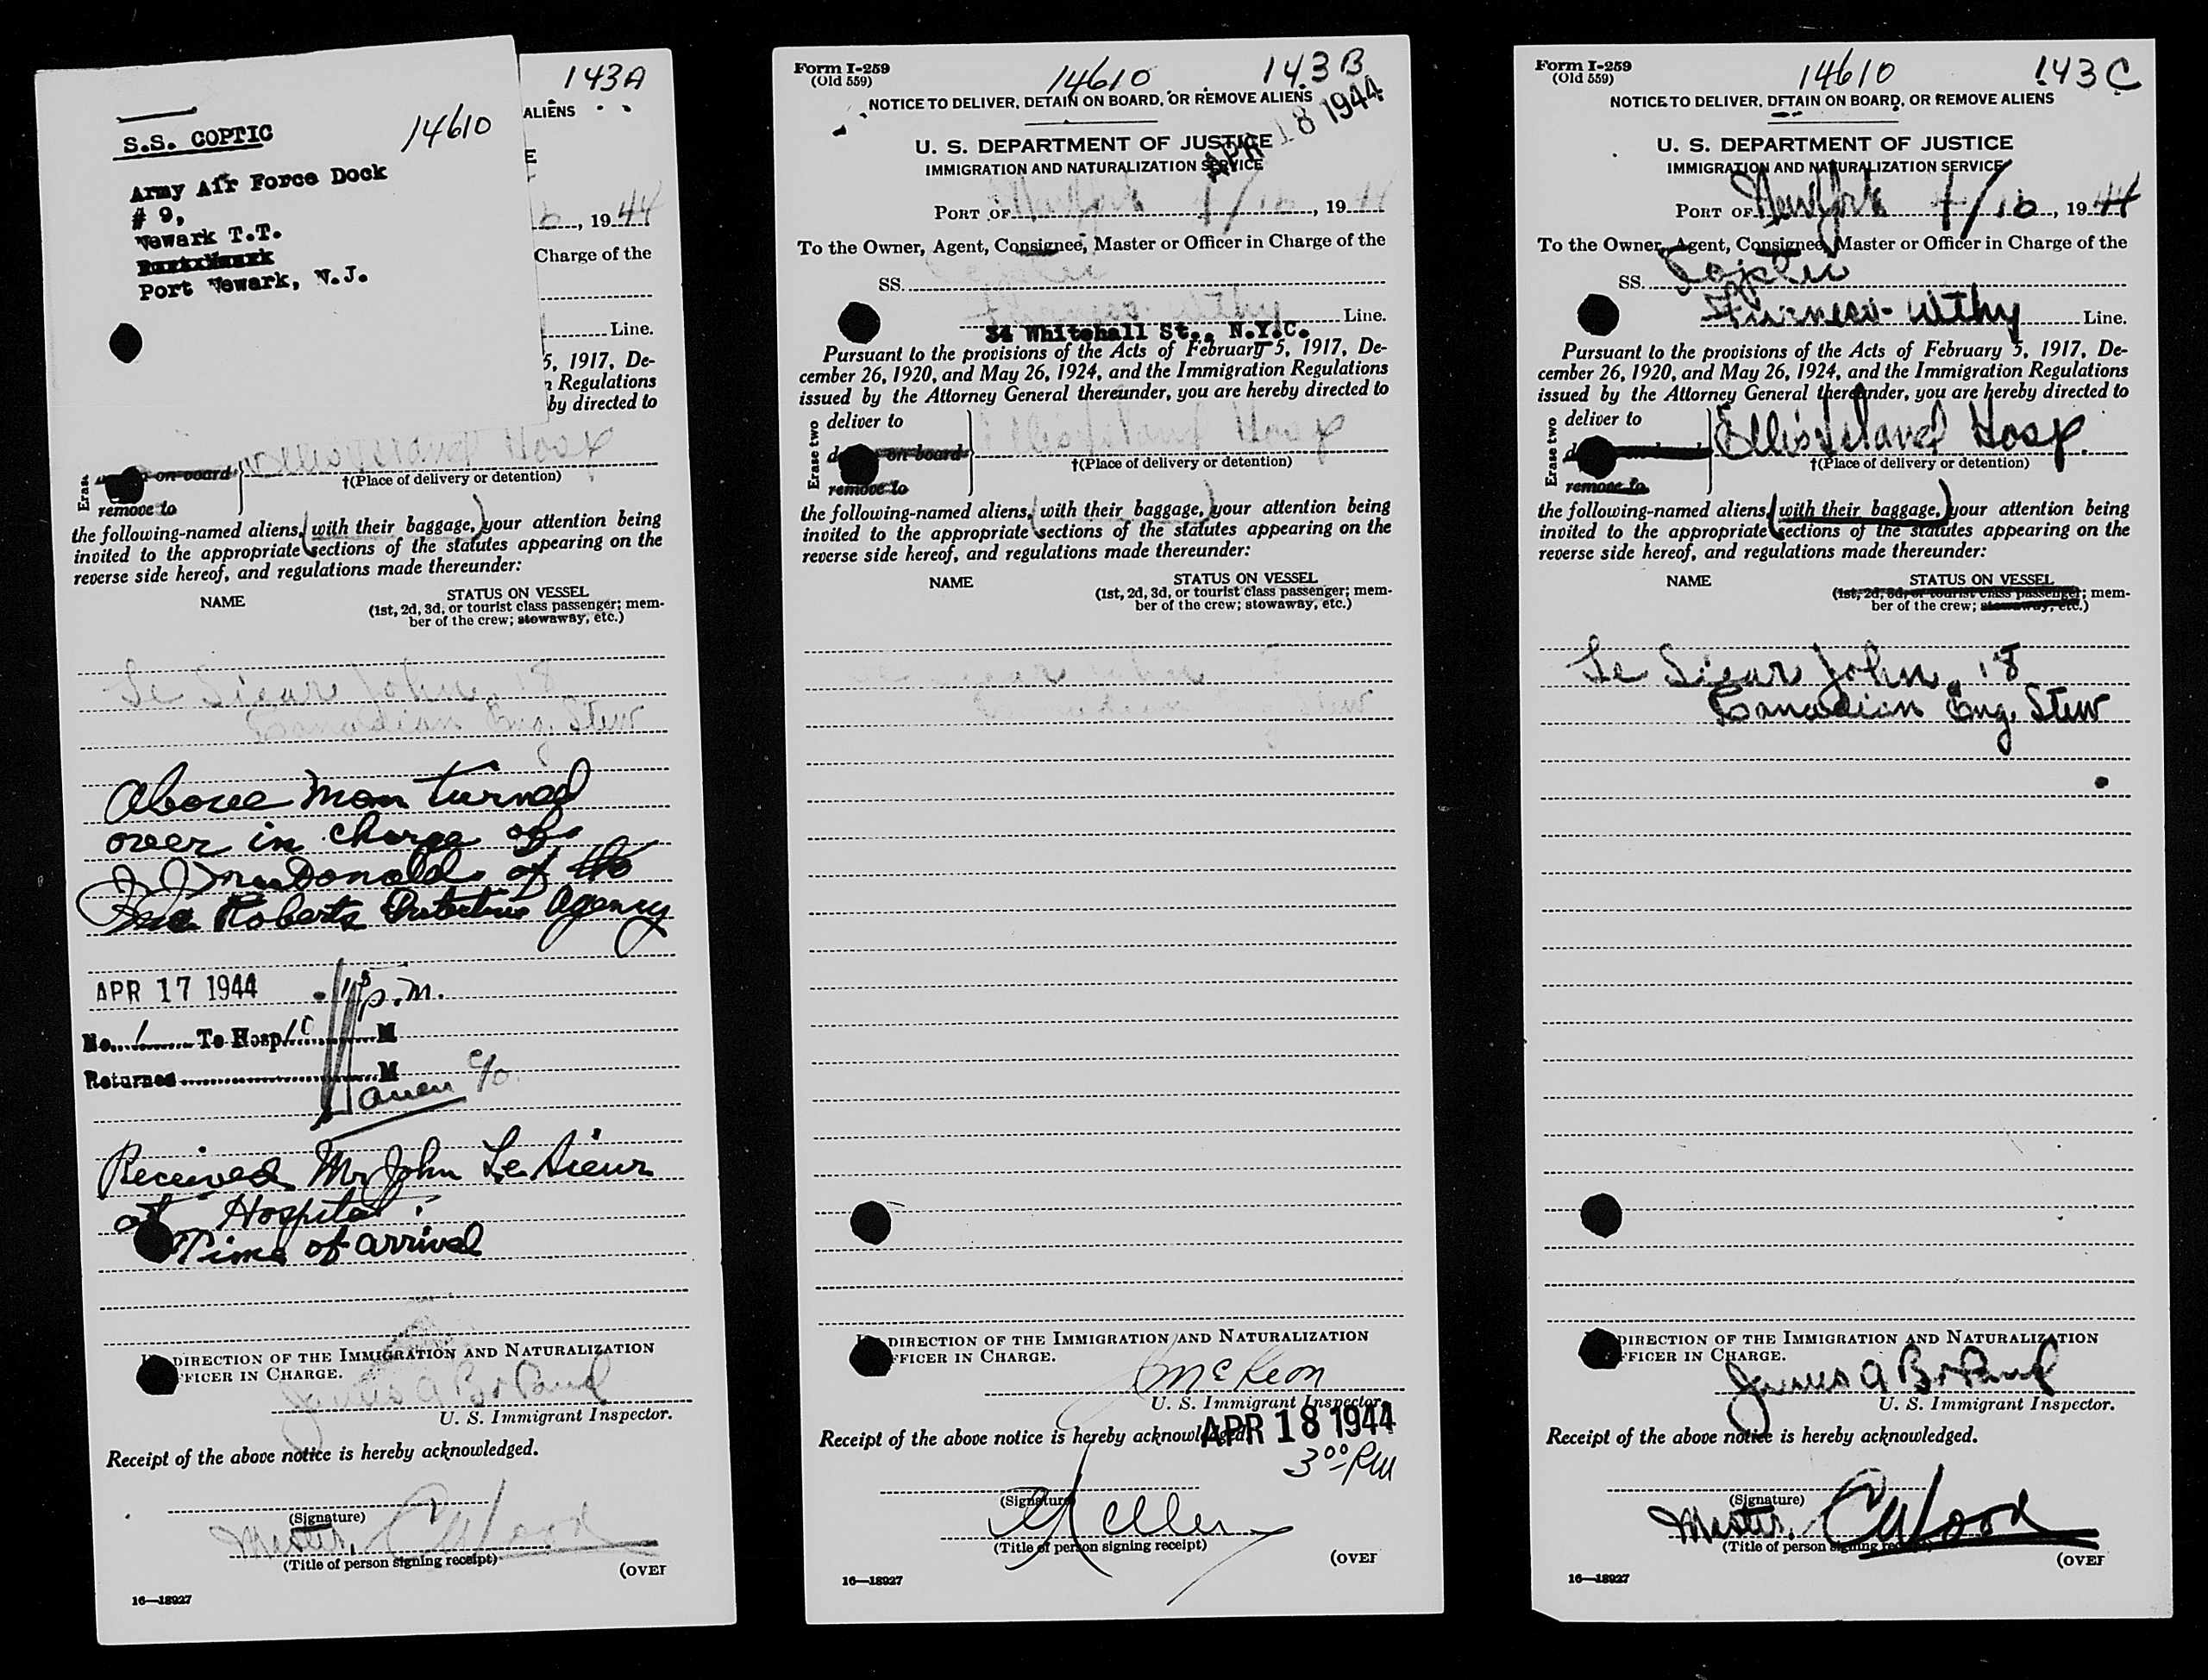 143A
ALIENS
S.S. COPTIC
14610
Army Air Force Dock
# 9,
Newark T.T.
Port Newark, N.J.
E
, 19 44
Charge of the
Line.
5, 1917, De-
n Regulations
by directed to
Ellis Island Hosp
on board
†(Place of delivery or detention)
Eras
remove to
the following-named aliens, (with their baggage,) your attention being
invited to the appropriate sections of the statutes appearing on the
reverse side hereof, and regulations made thereunder:
NAME
STATUS ON VESSEL
(1st, 2d, 3d, or tourist class passenger; mem-
ber of the crew; stowaway, etc.)
Le Sieur John, 18
Canadian Eng. Stew
Above man turned
over in charge of
J J MacDonald of the
Roberts Detective Agency
APR 17 1944
p.m.
No. 1 To Hosp M
Returned M
Received Mr John Le Sieur
at Hospital.
Time of arrival
DIRECTION OF THE IMMIGRATION AND NATURALIZATION
FICER IN CHARGE.
James A
U. S. Immigrant Inspector.
Receipt of the above notice is hereby acknowledged.
(Signature)
Master, C Wood
(Title of person signing receipt)
(OVER
16—18927
Form I-259
(Old 559)
14610
143B
NOTICE TO DELIVER, DETAIN ON BOARD, OR REMOVE ALIENS
APR 18 1944
U. S. DEPARTMENT OF JUSTICE
IMMIGRATION AND NATURALIZATION SERVICE
PORT OF New York 4/16, 19 44
To the Owner, Agent, Consignee, Master or Officer in Charge of the
SS. Coptic
Furness-Withy Line.
34 Whitehall St., N.Y.C.
Pursuant to the provisions of the Acts of February 5, 1917, De-
cember 26, 1920, and May 26, 1924, and the Immigration Regulations
issued by the Attorney General thereunder, you are hereby directed to
deliver to
Erase two
Ellis Island Hosp
d on board
†(Place of delivery or detention)
remove to
the following-named aliens, (with their baggage,) your attention being
invited to the appropriate sections of the statutes appearing on the
reverse side hereof, and regulations made thereunder:
NAME
STATUS ON VESSEL
(1st, 2d, 3d, or tourist class passenger; mem-
ber of the crew; stowaway, etc.)
DIRECTION OF THE IMMIGRATION AND NATURALIZATION
FFICER IN CHARGE.
J McKeon
U. S. Immigrant Inspector.
Receipt of the above notice is hereby acknowledged.
APR 18 1944
3 00 PM
(Signature)
(Title of person signing receipt)
(OVER
16—18927
Form I-259
(Old 559)
14610
143C
NOTICE TO DELIVER, DETAIN ON BOARD, OR REMOVE ALIENS
U. S. DEPARTMENT OF JUSTICE
IMMIGRATION AND NATURALIZATION SERVICE
PORT OF New York 4/16, 19 44
To the Owner, Agent, Consignee, Master or Officer in Charge of the
SS. Coptic
Furness-Withy Line.
Pursuant to the provisions of the Acts of February 5, 1917, De-
cember 26, 1920, and May 26, 1924, and the Immigration Regulations
issued by the Attorney General thereunder, you are hereby directed to
deliver to
Erase two
Ellis Island Hosp.
†(Place of delivery or detention)
remove to
the following-named aliens, (with their baggage,) your attention being
invited to the appropriate sections of the statutes appearing on the
reverse side hereof, and regulations made thereunder:
NAME
STATUS ON VESSEL
(1st, 2d, 3d, or tourist class passenger; mem-
ber of the crew; stowaway, etc.)
Le Sieur John, 18
Canadian Eng. Stew
DIRECTION OF THE IMMIGRATION AND NATURALIZATION
FFICER IN CHARGE.
James A
U. S. Immigrant Inspector.
Receipt of the above notice is hereby acknowledged.
(Signature)
Master, C Wood
(Title of person signing receipt)
(OVER
16—18927